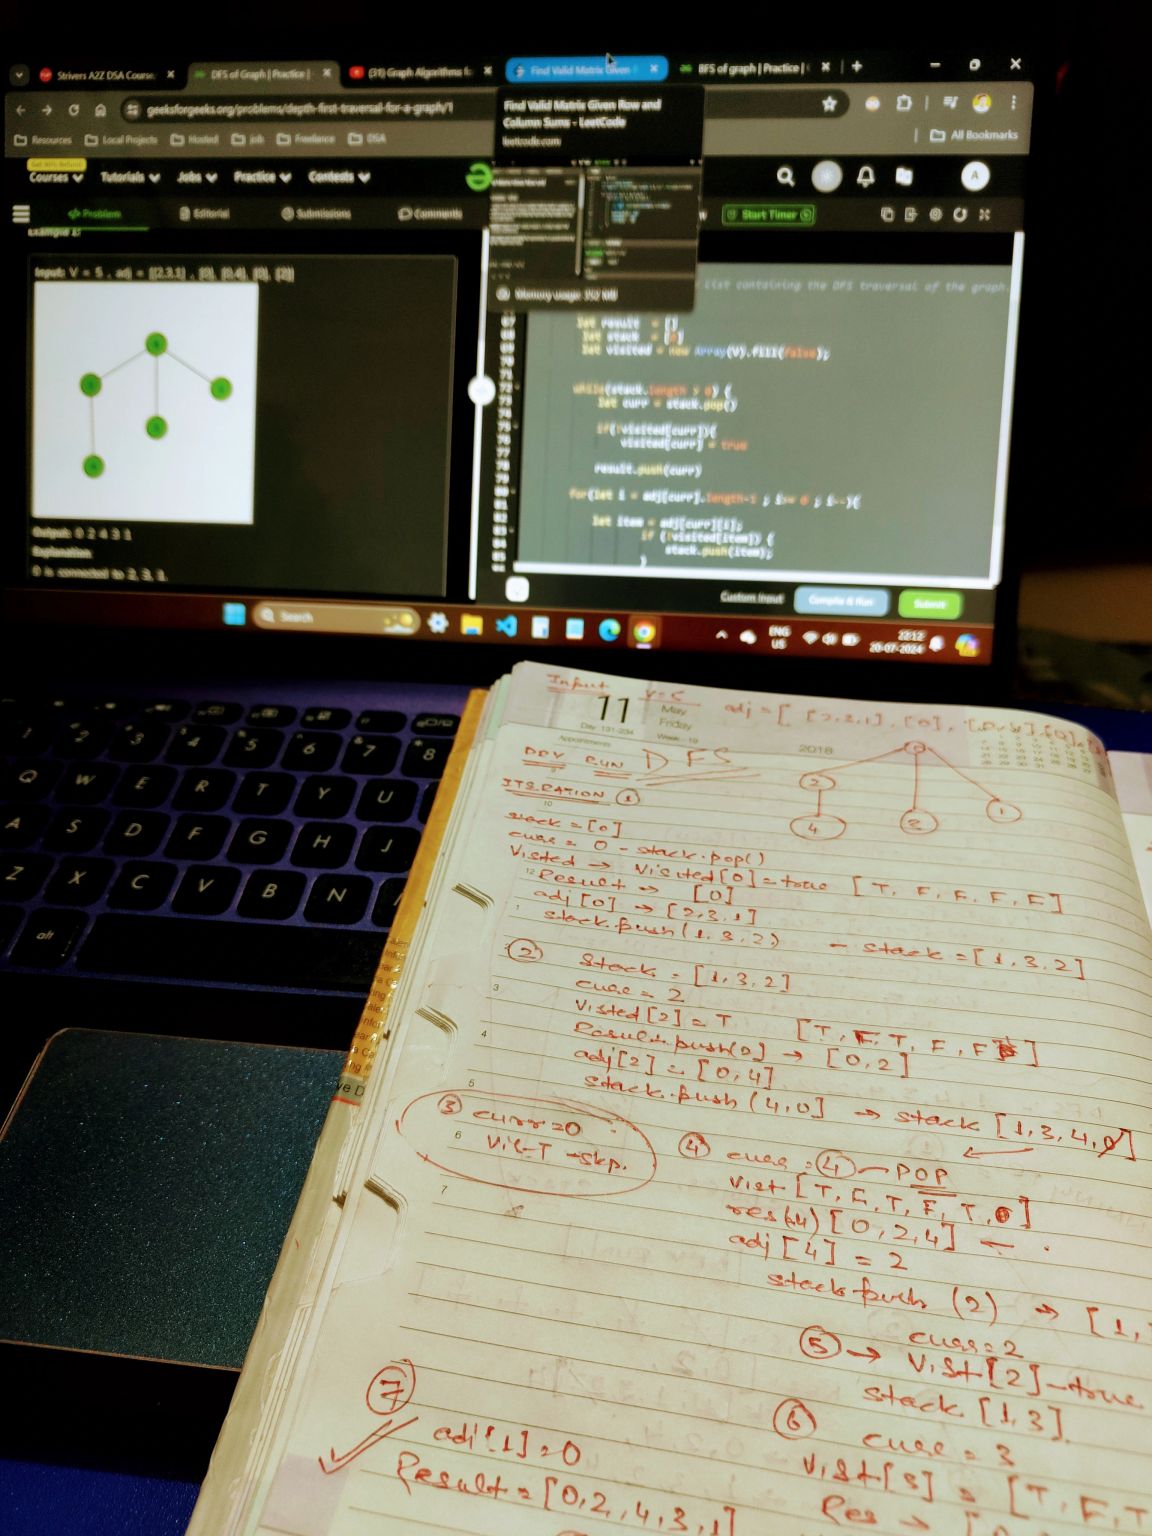 Strivers A2Z DSA Course
DFS of Graph | Practice |
(31) Graph Algorithms f
Find Valid Matrix Given
BFS of graph | Practice |
geeksforgeeks.org/problems/depth-first-traversal-for-a-graph/1
Find Valid Matrix Given Row and
Column Sums - LeetCode
leetcode.com
Resources
Local Projects
Hosted
job
Freelance
DSA
All Bookmarks
Courses
Tutorials
Jobs
Practice
Contests
A
Problem
Editorial
Submissions
Comments
Start Timer
Input: V = 5 , adj = [[2,3,1] , [0], [0,4], [0], [2]]
Output: 0 2 4 3 1
Explanation:
0 is connected to 2, 3, 1.
list containing the DFS traversal of the graph.
let result = []
let stack = [0]
let visited = new Array(V).fill(false);
while(stack.length > 0) {
let curr = stack.pop()
if(!visited[curr]){
visited[curr] = true
result.push(curr)
for(let i = adj[curr].length-1 ; i>= 0 ; i--){
let item = adj[curr][i];
if (!visited[item]) {
stack.push(item);
}
Custom Input
Compile & Run
Submit
Search
ENG
US
22:12
20-07-2024
Input
V=5
11
May
Friday
Day 131-234
Week - 19
Appointments
2018
DRY RUN DFS
ITERATION 1
0
2
4
1
stack = [0]
curr = 0 - stack.pop()
Visted → Visited[0] = true [T, F, F, F, F]
Result → [0]
adj[0] → [2,3,1]
stack.push(1,3,2) - stack = [1,3,2]
2
Stack = [1,3,2]
curr = 2
Visted[2] = T
Result.push(2) → [0,2]
adj[2] = [0,4]
stack.push(4,0] → stack [1,3,4,0]
3 curr=0
4 curr = 4 - POP
res(4) [0,2,4] ←
adj[4] = 2
stack.push (2) → [1,
5 → curr=2
Vist[2]-true
stack [1,3].
6
curr = 3
Vist[3] = [T, F, T
Res →
7
adj[1] = 0
Result = [0,2,4,3,1]
1 2 3 4 5 6 7 8
Q W E R T Y U
A S D F G H J
Z X C V B N
alt